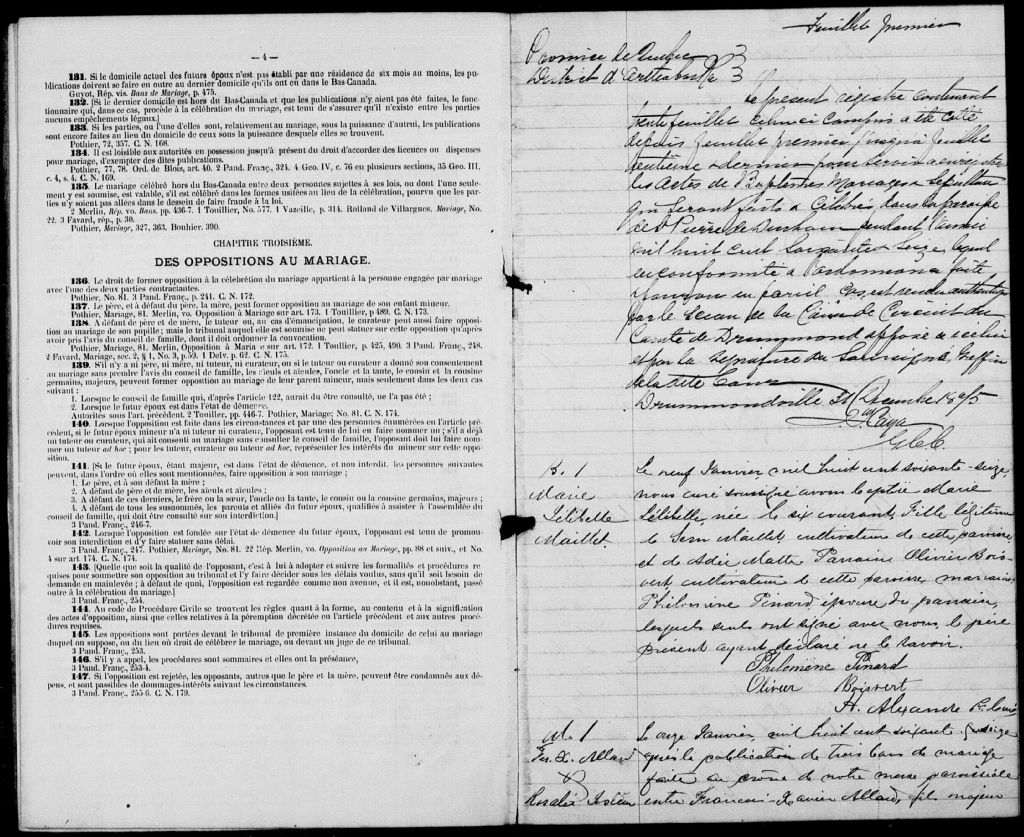 — 4 —
131. Si le domicile actuel des futurs époux n'est pas établi par une résidence de six mois au moins, les pu-
blications doivent se faire en outre au dernier domicile qu'ils ont eu dans le Bas-Canada.
Guyot, Rép. vis. Bans de Mariage, p. 475.
132. [Si le dernier domicile est hors du Bas-Canada et que les publications n'y aient pas été faites, le fonc-
tionnaire qui, dans ce cas, procède à la célébration du mariage, est tenu de s'assurer qu'il n'existe entre les parties
aucuns empêchements légaux.]
133. Si les parties, ou l'une d'elles sont, relativement au mariage, sous la puissance d'autrui, les publications
sont encore faites au lieu du domicile de ceux sous la puissance desquels elles se trouvent.
Pothier, 72, 357. C. N. 168.
134. Il est loisible aux autorités en possession jusqu'à présent du droit d'accorder les licences ou dispenses
pour mariage, d'exempter des dites publications.
Pothier, 77, 78. Ord. de Blois, art. 40. 2 Pand. Franç., 324. 4 Geo. IV, c. 76 en plusieurs sections, 35 Geo. III,
c. 4, s. 4. C. N. 169.
135. Le mariage célébré hors du Bas-Canada entre deux personnes sujettes à ses lois, ou dont l'une seule-
ment y est soumise, est valable, s'il est célébré dans les formes usitées au lieu de la célébration, pourvu que les par-
ties n'y soient pas allées dans le dessein de faire fraude à la loi.
2 Merlin, Rép. vo. Bans. pp. 436-7. 1 Touillier, No. 577. 1 Vazeille, p. 314. Rolland de Villargues, Mariage, No.
22. 3 Favard, rép., p. 30.
Pothier, Mariage, 327, 363. Bouhier. 390.
CHAPITRE TROISIÈME.
DES OPPOSITIONS AU MARIAGE.
136. Le droit de former opposition à la célébration du mariage appartient à la personne engagée par mariage
avec l'une des deux parties contractantes.
Pothier, No. 81. 3 Pand. Franç., p. 241. C. N. 172.
137. Le père, et à défaut du père, la mère, peut former opposition au mariage de son enfant mineur.
Pothier, Mariage, 81. Merlin, vo. Opposition à Mariage sur art. 173. 1 Touillier, p 489. C. N. 173.
138. A défaut de père et de mère, le tuteur ou, au cas d'émancipation, le curateur peut aussi faire opposi-
tion au mariage de son pupille; mais le tribunal auquel elle est soumise ne peut statuer sur cette opposition qu'après
avoir pris l'avis du conseil de famille, dont il doit ordonner la convocation.
Pothier, Mariage, 81. Merlin, Opposition à Maria e sur art. 172. 1 Toullier, p. 425, 490. 3 Pand. Franç., 248.
2 Favard, Mariage, sec. 2, § 1, No. 3, p.59. 1 Delv. p. 62. C. N. 175.
139. S'il n'y a ni père, ni mère, ni tuteur, ni curateur, ou si le tuteur ou curateur a donné son consentement
au mariage sans prendre l'avis du conseil de famille, les aïeuls et aïeules, l'oncle et la tante, le cousin et la cousine
germains, majeurs, peuvent former opposition au mariage de leur parent mineur, mais seulement dans les deux cas
suivant :
1. Lorsque le conseil de famille qui, d'après l'article 122, aurait du être consulté, ne l'a pas été ;
2. Lorsque le futur époux est dans l'état de démence.
Autorités sous l'art. précédent. 2 Touiller. pp. 446-7. Pothier, Mariage; No. 81. C. N. 174.
140. Lorsque l'opposition est faite dans les circonstances et par une des personnes énumérées en l'article pré-
cédent, si le futur époux mineur n'a ni tuteur ni curateur, l'opposant est tenu de lui en faire nommer un ; s'il a déjà
un tuteur ou curateur, qui ait consenti au mariage sans consulter le conseil de famille, l'opposant doit lui faire nom-
mer un tuteur ad hoc ; pour les tuteur, curateur ou tuteur ad hoc, représenter les intérêts du mineur sur cette oppo-
sition.
141. [Si le futur époux, étant majeur, est dans l'état de démence, et non interdit. les personnes suivantes
peuvent, dans l'ordre où elles sont mentionnées, faire opposition à son mariage :
1. Le père, et à son défaut la mère ;
2. A défaut de père et de mère, les aïeuls et aïeules ;
3. A défaut de ces derniers, le frère ou la sœur, l'oncle ou la tante, le cousin ou la cousine germains, majeurs ;
4. A défaut de tous les susnommés, les parents et alliés du futur époux, qualifiés à assister à l'assemblée du
conseil de famille, qui doit être consulté sur son interdiction.]
3 Pand. Franç., 246-7.
142. Lorsque l'opposition est fondée sur l'état de démence du futur époux, l'opposant est tenu de promou-
voir son interdiction et d'y faire statuer sans délai.
3 Pand. Franç., 247. Pothier, Mariage, No. 81. 22 Rép. Merlin, vo. Opposition au Mariage, pp. 88 et suiv., et No.
4 sur art. 174. C. N. 174.
143. [Quelque soit la qualité de l'opposant, c'est à lui à adopter et suivre les formalités et procédures re-
quises pour soumettre son opposition au tribunal et l'y faire décider sous les délais voulus, sans qu'il soit besoin de
demande en mainlevée ; à défaut de quoi, l'opposition est regardée comme non avenue, et il est, nonobstant, passé
outre à la célébration du mariage.]
3 Pand. Franç., 254.
144. Au code de Procédure Civile se trouvent les règles quant à la forme, au contenu et à la signification
des actes d'opposition, ainsi que celles relatives à la péremption décrétée en l'article précédent et aux autres procé-
dures requises.
145. Les oppositions sont portées devant le tribunal de première instance du domicile de celui au mariage
duquel on suppose, ou du lieu où doit de célébrer le mariage, ou devant un juge de ce tribunal.
3 Pand. Franç., 253.
146. S'il y a appel, les procédures sont sommaires et elles ont la préséance,
3 Pand. Franç., 253-4.
147. Si l'opposition est rejetée, les opposants, autres que le père et la mère, peuvent être condamnés aux dé-
pens, et sont passibles de dommages-intérêts suivant les circonstances.
3 Pand. Franç., 255 6. C. N. 179.
Feuillet premier
Province de Québec
District d'Arthabaska
Le présent registre contenant
trente feuillet celui ci compris a été coté
depuis feuillet premier jusqu'à feuillet
trentième & dernier pour servir a enregistrer
les Actes de Baptêmes Mariages & Sépultures
qui seront faits & célébrés dans la paroisse
de St Pierre de Durham pendant l'année
mil huit cent soixante & seize lequel
en conformité a l'ordonnance faite
& pourvu en pareil cas, est rendu authentique
par le Sceau de la Cour de Circuit du
Comté de Drummond apposé a
et par la signature du Greffier
de la dite Cour
Drummondville Décembre 1875
G.C.C.
B. 1
Marie
Lélibelle
Maillet.
Le neuf Janvier mil huit cent soixante-seize,
nous curé soussigné avons baptisé Marie
Lélibelle, née le six courant, Fille légitime
de Sem Maillet, cultivateur de cette paroisse,
et de Adée Matte Parrain Olivier Bois-
vert cultivateur de cette paroisse, marraine
Philomène Pinard épouse du parrain,
lesquels seuls ont signé avec nous, le père
présent ayant déclaré ne le savoir.
Philomène Pinard
Olivier Boisvert
H. Alexandre Ptre Curé
M. 1
Frs. X. Allard
&
Rosalie
Le onze Janvier, mil huit cent soixante & seize
après la publication de trois bans de mariage
faite au prône de notre messe paroissiale
entre François-Xavier Allard, fils majeur